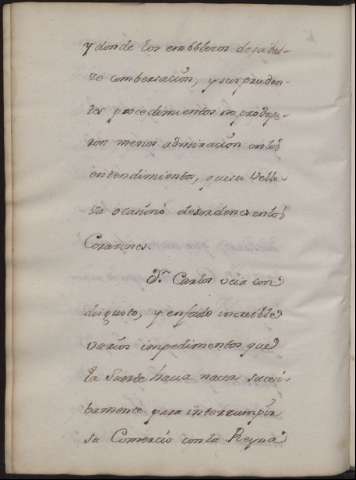 y donde los emblecos de su dis-
creta combersacion, y sus pruden-
tes procedimientos no produge-
ron menos admiracion en los
entendimientos, que su belle-
sa ocasiono desordenes en los
Corazones.
Dn. Carlos veia con
disgusto, y enfado increible
varios impedimentos que
la Suerte hacia nacer sucesi-
bamente para interrumpir
su Comercio con la Reyna